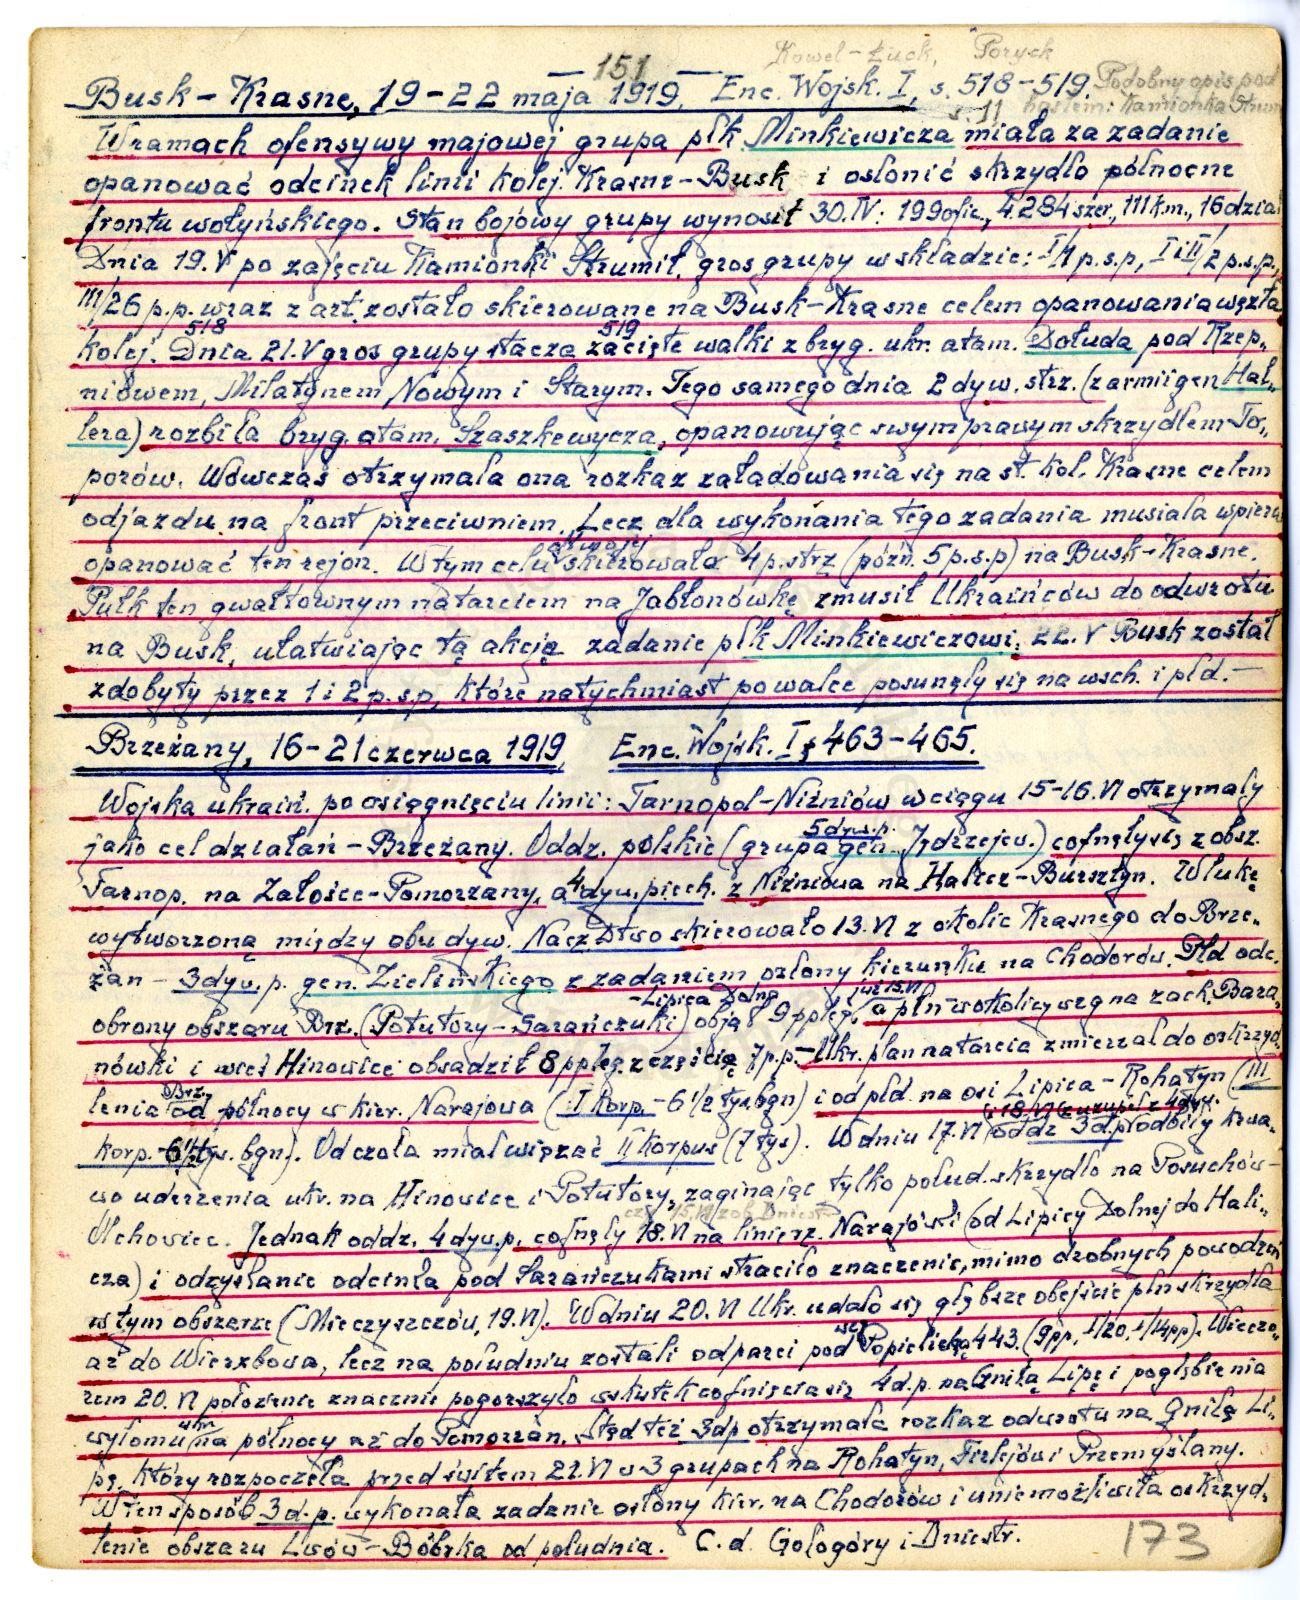 — 151 —
Kowel – Łuck, Poryck
Busk – Krasne, 19–22 maja 1919. Enc. Wojsk. I, s. 518–519.
Podobny opis pod
hasłem: Kamionka Strum
s. 11
W ramach ofensywy majowej grupa płk Minkiewicza miała za zadanie
opanować odcinek linii kolej. Krasne–Busk i osłonić skrzydło północne
frontu wołyńskiego. Stan bojowy grupy wynosił 30.IV: 199 ofic., 4.284 szer., 111 k.m., 16 dział
Dnia 19.V po zajęciu Kamionki Strumił. gros grupy w składzie: I/1 p.s.p., I i II/2 p.s.p.,
III/26 p.p. wraz z art. zostało skierowane na Busk–Krasne celem opanowania węzła
518 519
kolej. Dnia 21.V gros grupy stacza zacięte walki z bryg. ukr. atam. Dołuda pod Rzep-
niowem, Milatynem Nowym i Starym. Tego samego dnia 2 dyw. strz. (z armii gen Hal-
lera) rozbiła bryg. atam. Szaszkewycza, opanowując swym prawym skrzydłem To-
porów. Wówczas otrzymała ona rozkaz załadowania się na st. kol. Krasne celem
odjazdu na front przeciwniem. Lecz dla wykonania tego zadania musiała wpierw
opanować ten rejon. W tym celu skierowała 4 p. strz (późn. 5 p.s.p) na Busk–Krasne.
Pułk ten gwałtownym natarciem na Jabłonówkę zmusił Ukraińców do odwrotu
na Busk, ułatwiając tą akcją zadanie płk Minkiewiczowi. 22.V Busk został
zdobyty przez 1 i 2 p.s.p, które natychmiast po walce posunęły się na wsch. i płd.—
Brzeżany, 16–21 czerwca 1919 Enc. Wojsk. I, s 463–465.
Wojska ukraiń. po osiągnięciu linii: Tarnopol–Niżniów w ciągu 15–16.VI otrzymały
5 dyw. p.
jako cel działań – Brzeżany. Oddz. polskie (grupa gen. Jędrzejew.) cofnęły się z obsz.
Tarnop. na Załośce–Pomorzany, a 4 dyw. piech. z Niżniowa na Halicz–Bursztyn. W lukę
wytworzoną między obu dyw. Nacz Dtwo skierowało 13.VI z okolic Krasnego do Brze-
żan – 3 dyw. p. gen. Zielińskiego z zadaniem osłony kierunku na Chodorów. Płd odc.
– Lipica Dolna
obrony obszaru Brz. (Potutory–Sarańczuki) objął 9 ppleg, a płn – w okolicy wzg na zach. Bara-
nówki i wieś Hinowice obsadził 8 ppleg z częścią 7 p.p.– Ukr. plan natarcia zmierzał do oskrzyd-
Brz.
lenia od północy w kier. Narajowa (I Korp. – 6 1/2 tys. bgn) i od płd. na osi Lipica – Rohatyn (III
korp. – 6 1/2 tys. bgn.). Od czoła miał wiązać II Korpus (7 tys). W dniu 17.VI oddz 3 d.p odbiły krwa-
wo uderzenia ukr. na Hinowice i Potutory, zaginając tylko połud. skrzydło na Posuchów–
Olchowiec. Jednak oddz. 4 dyw. p. cofnęły 18.VI na linię rz. Narajówki (od Lipicy Dolnej do Hali-
cza) i odzyskanie odcinka pod Sarańczukami straciło znaczenie, mimo drobnych powodzeń
w tym obszarze (Mieczyszczów, 19.VI). W dniu 20.VI Ukr. udało się głębsze obejście płn skrzydła
aż do Wierzbowa, lecz na południu zostali odparci pod Popielichą 443. (9 pp, I/20, I/14 pp). Wieczo-
rem 20.VI położenie znacznie pogorszyło wskutek cofnięcia się 4 d.p. na Gniłą Lipę i pogłębienia
ukr.
wyłomu na północy aż do Pomorzan. Stąd też 3 dp otrzymała rozkaz odwrotu na Gniłą Li-
pę, który rozpoczęła przed świtem 21.VI w 3 grupach na Rohatyn, Firlejów i Przemyślany.
W ten sposób 3 d.p. wykonała zadanie osłony kier. na Chodorów i uniemożliwiła oskrzyd-
lenie obszaru Lwów–Bóbrka od południa. C.d. Gołogóry i Dniestr.
173